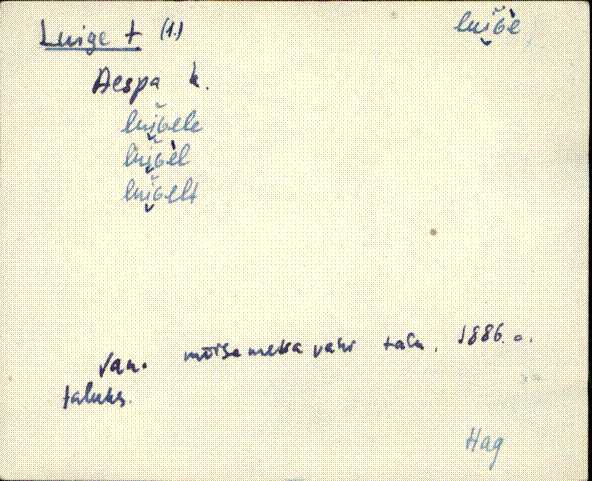 Luige t (1.) lui̯ɢè
Aespa k.
lui̯ɢele
lui̯ɢèl
lui̯ɢelt
Van. mõisa metsavahi talu. 1886. a.
taluks.
Hag